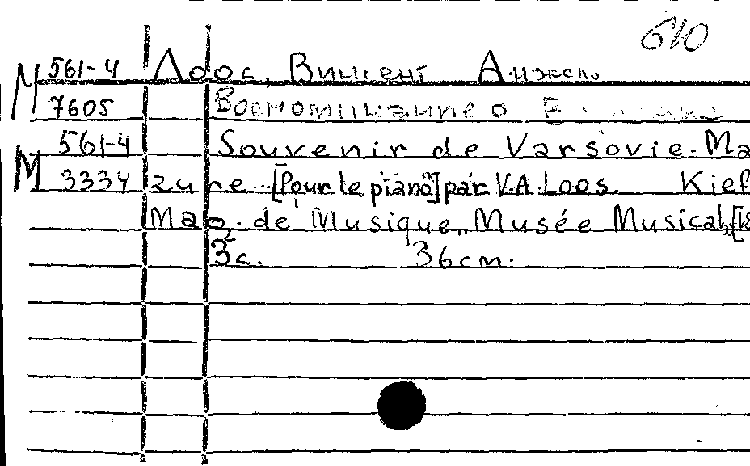 610
М 561-4 Лоос, Винцент Анжель
7605 Воспоминание о
561-4 Souvenir de Varsovie. Ma
М 3334 zure [Pour le piano] par V.A. Loos. Kief
Mag. de Musique „Musée Musical", [К
3с. 36cm.